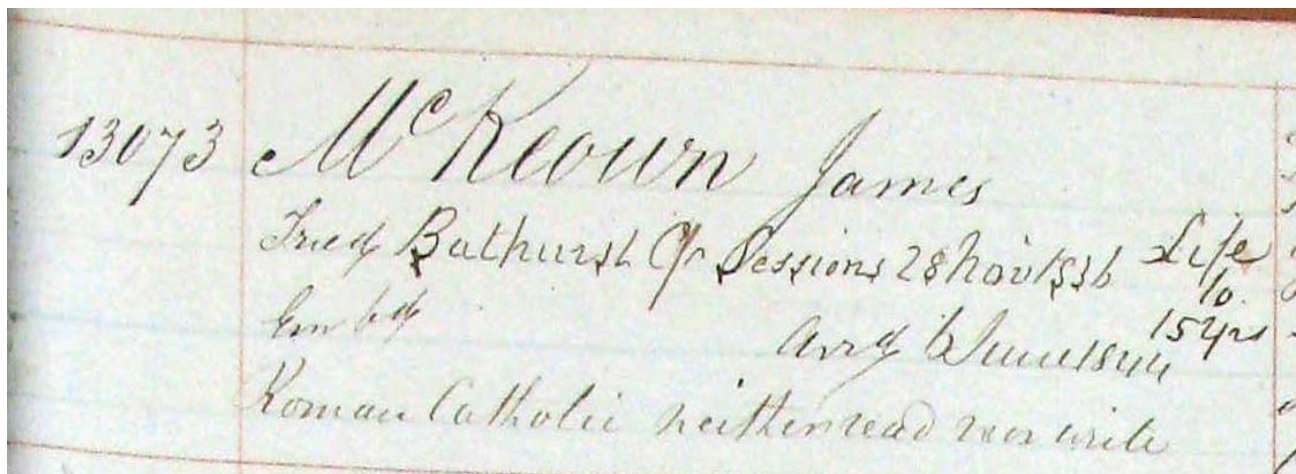 13073 McKeown James
Tried Bathurst Qr Sessions 28 Nov 1836 Life
to
Embd Arrd 6 June 1844 15 yrs
Roman Catholic neither read nor write